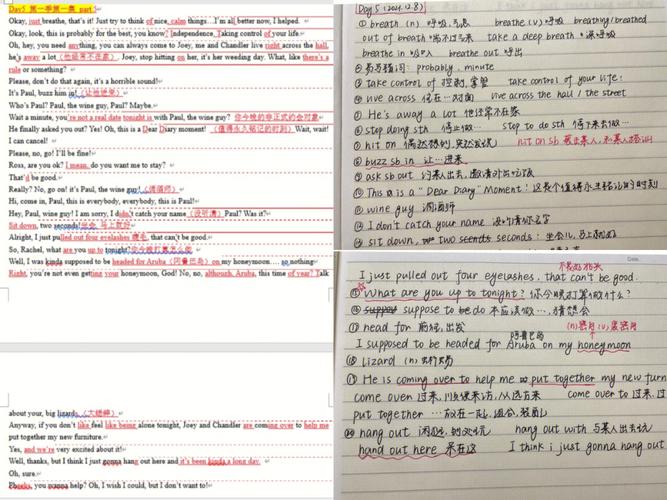 Day5 第一季第一集 part 3
Okay, just breathe, that's it! Just try to think of nice, calm things…I'm all better now, I helped.
Okay, look, this is probably for the best, you know? Independence. Taking control of your life.
Oh, hey, you need anything, you can always come to Joey, me and Chandler live right across the hall,
he's away a lot(他经常不在家), Joey, stop hitting on her, it's her wedding day. What, like there's a
rule or something?
Please, don't do that again, it's a horrible sound!
It's Paul, buzz him in!(让他进来)
Who's Paul? Paul, the wine guy, Paul? Maybe.
Wait a minute, you're not real date tonight is with Paul, the wine guy?
He finally asked you out? Yes! Oh, this is a Dear Diary moment! (值得永久铭记的时刻) Wait, wait!
I can cancel!
Please, no, go! I'll be fine!
Ross, are you ok? I mean, do you want me to stay?
That'd be good.
Really? No, go on! it's Paul, the wine guy!
Hi, come in, Paul, this is everybody, everybody, this is Paul!
Hey, Paul, wine guy! I am sorry, I didn't catch your name(没听清) Paul? Was it?
Sit down, two seconds!
Alright, I just pulled out four eyelashes 睫毛, that can't be good.
So, Rachel, what are you up to tonight?你今晚打算怎么过
Well, I was kinda supposed to be headed for Aruba(阿鲁巴岛) on my honeymoon…. so nothing
Right, you're not even getting your honeymoon, God! No, no, although, Aruba, this time of year? Talk
about your, big lizards.(大蜥蜴)
Anyway, if you don't like feel like being alone tonight, Joey and Chandler are coming over to help me
put together my new furniture.
Yes, and we're very excited about it!
Well, thanks, but I think I just gonna hang out here and it's been kinda a long day.
Oh, sure.
Pheeks, you wanna help? Oh, I wish I could, but I don't want to!
Day 5 (2021.12.8)
① breath (n) 呼吸,气息 breathe (v) 呼吸 breathing/breathed
out of breath take a deep breath 深呼吸
breathe in 吸入 breathe out 呼出
② 易弱猜词: probably, minute
③ take control of 控制,掌管 take control of your life!
④ live across 住在…对面 live across the hall / the street
⑤ He's away a lot 他经常不在家
⑥ stop doing sth 停止做… stop to do sth 停下来去做…
⑦ hit on
⑧ buzz sb in 让…进来
⑨ ask sb out
⑩ This is a "Dear Diary" Moment!
⑪ wine guy 调酒师
⑫ I don't catch your name 没听清你名字
⑬ sit down, two seconds:
I just pulled out four eyelashes. that can't be good.
What are you up to tonight? 你今晚打算做什么?
⑯ suppose to do 本应该做…, 猜想会
⑰ head for 前往,出发
阿鲁巴岛
I supposed to be headed for Aruba on my honeymoon
⑱ lizard (n) 大蜥蜴
⑲ He is coming over to help me put together my new furn
come over come over to
put together …放在一起, 组合, 装配
⑳ hang out hang out with 与某人出去玩
hand out here 呆在这 I think i just gonna hang out